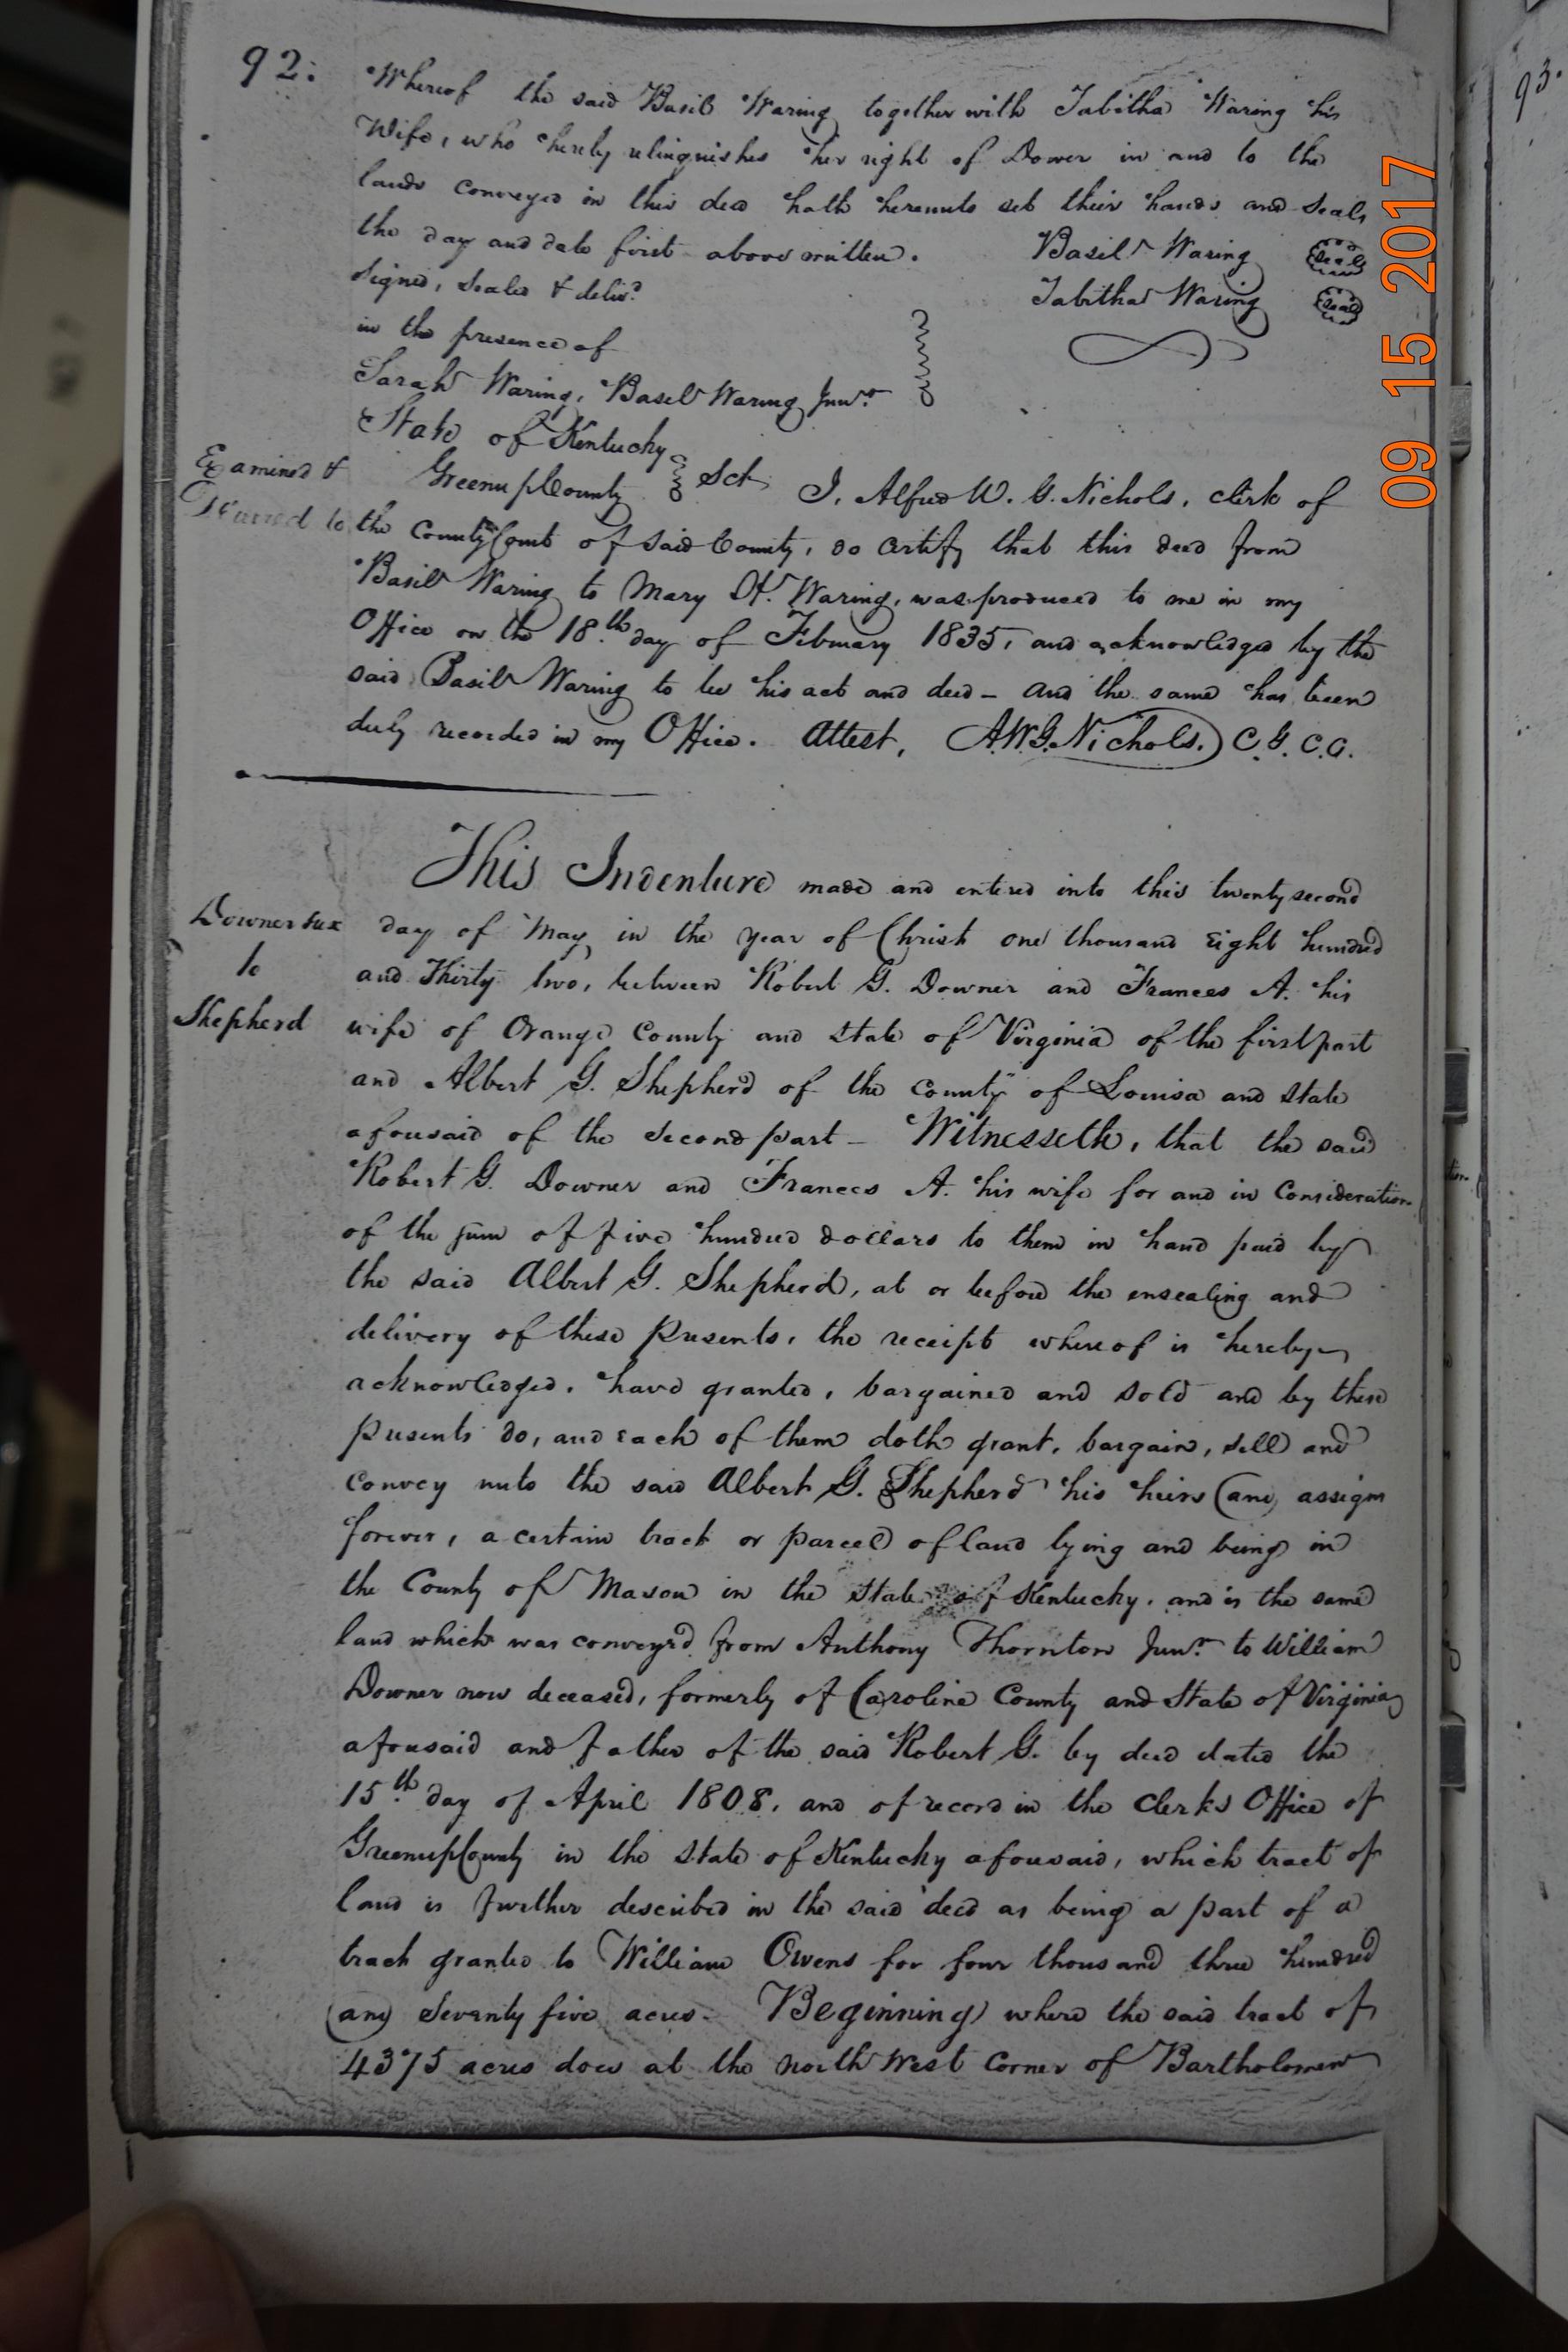 92:
Whereof the said Basil Waring together with Tabitha Waring his
Wife, who hereby relinquishes her right of Dower in and to the
lands conveyed in this deed hath hereunto set their hands and seals
the day and date first above written. Basil Waring Seal
Signed, Sealed & delivd Tabitha Waring Seal
in the presence of
Sarah Waring, Basil Waring Junr
State of Kentucky
Greenup County Sct I, Alfred W. G. Nichols, clerk of
Examined &
to the County Court of said County, do certify that this deed from
Basil Waring to Mary H. Waring, was produced to me in my
Office on the 18th day of February 1835, and acknowledged by the
said Basil Waring to be his act and deed - and the same has been
duly recorded in my Office. Attest, A.W.G. Nichols. C. G. C. C.
This Indenture made and entered into this twenty second
Downer &ux day of May in the year of Christ one thousand Eight hundred
to and Thirty two, between Robert G. Downer and Frances A. his
Shepherd wife of Orange County and State of Virginia of the first part
and Albert G. Shepherd of the County of Louisa and State
aforesaid of the second part - Witnesseth, that the said
Robert G. Downer and Frances A. his wife for and in Consideration
of the sum of five hundred dollars to them in hand paid by
the said Albert G. Shepherd, at or before the ensealing and
delivery of these Presents, the receipt whereof is hereby
acknowledged, have granted, bargained and sold and by these
presents do, and each of them doth grant, bargain, sell and
convey unto the said Albert G. Shepherd his heirs and assigns
forever, a certain tract or parcel of land lying and being in
the County of Mason in the State of Kentucky, and is the same
land which was conveyed from Anthony Thornton Junr to William
Downer now deceased, formerly of Caroline County and State of Virginia
aforesaid and father of the said Robert G. by deed dated the
15th day of April 1808, and of record in the Clerks Office of
Greenup County in the State of Kentucky aforesaid, which tract of
land is further described in the said deed as being a part of a
tract granted to William Owens for four thousand three hundred
and Seventy five acres. Beginning where the said tract of
4375 acres does at the North West Corner of Bartholomew
09 15 2017
93.